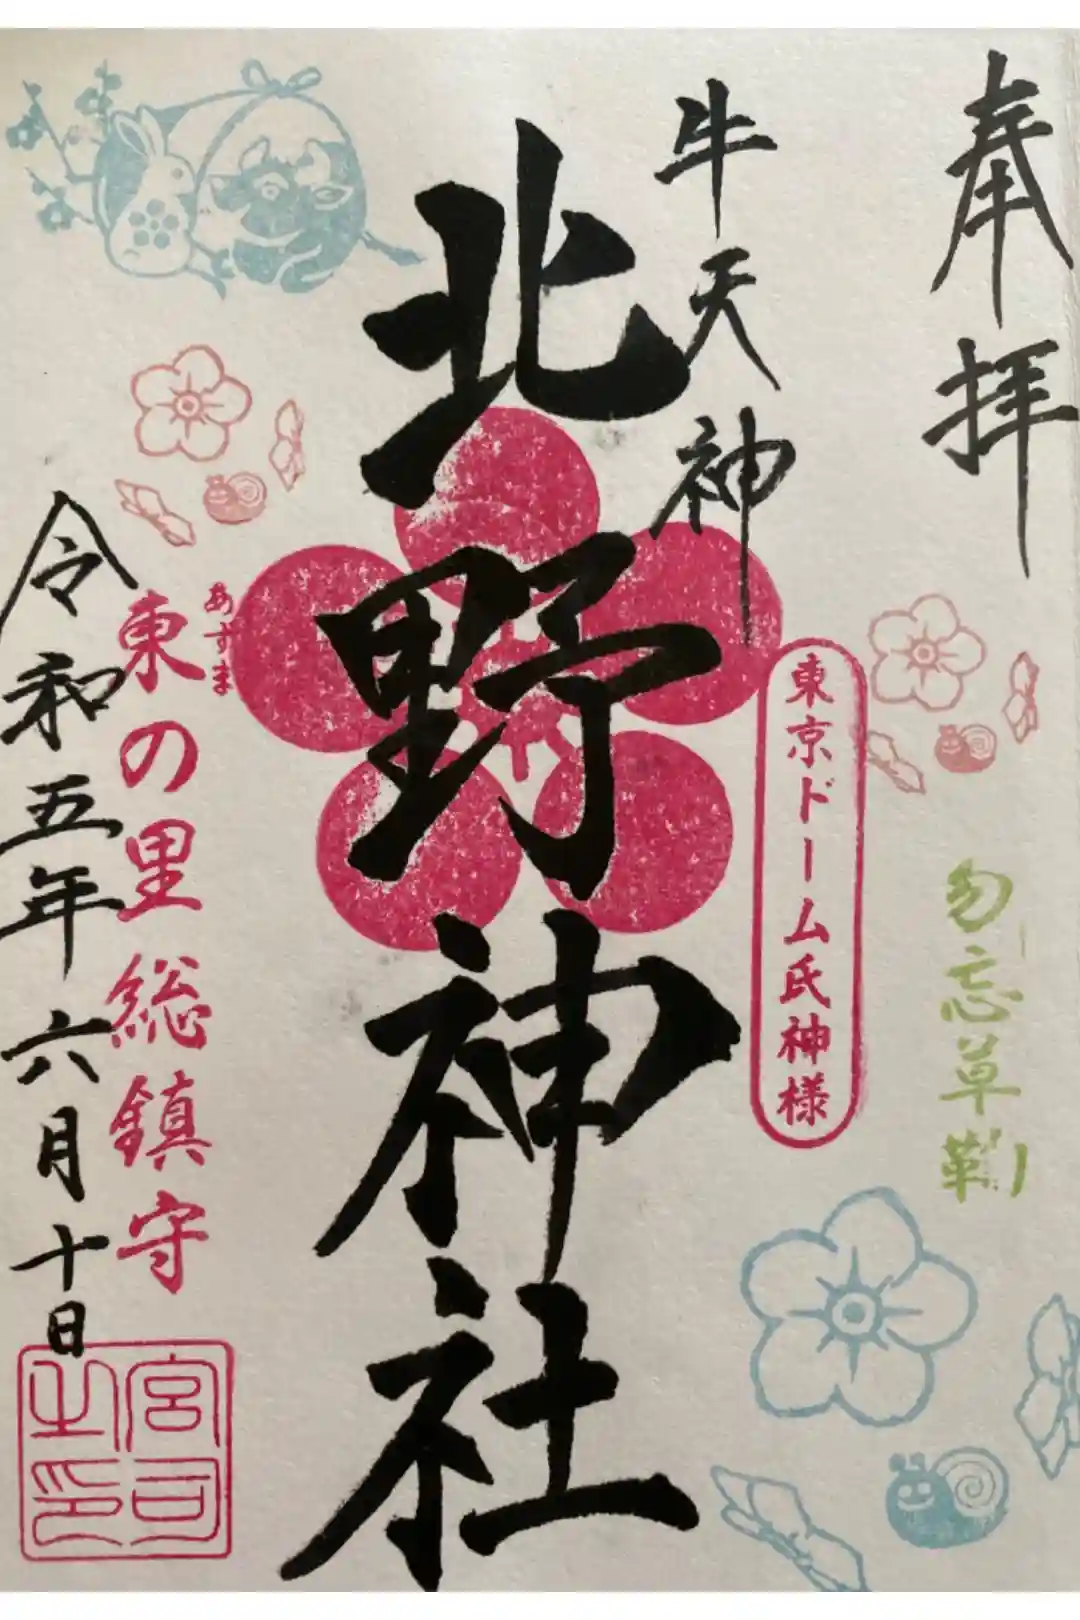 奉拝
勿忘草
東京ドーム氏神様
牛天神
北野神社
あずま
東の里総鎮守
令和五年六月十日
宮司
之印